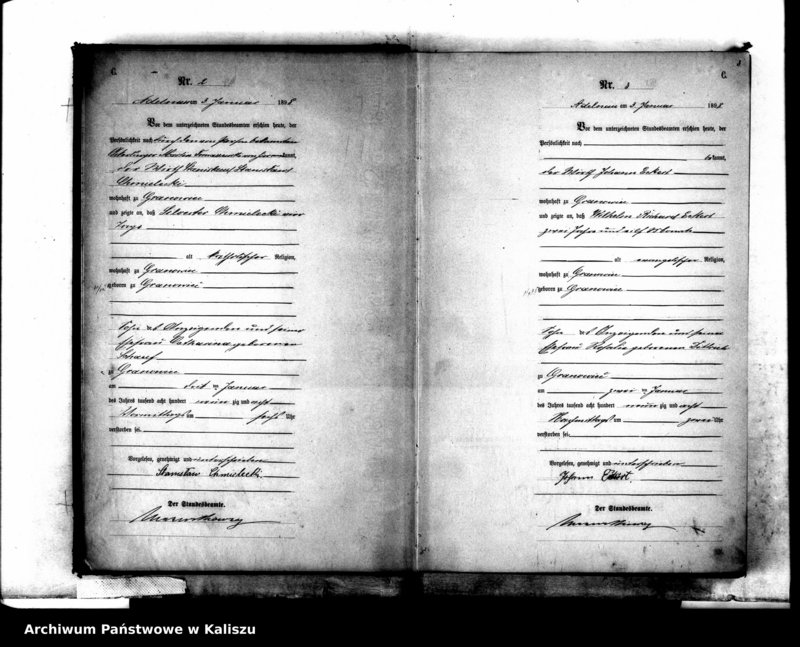 C.
Nr. 2
Adelnau am 3. Januar 1898
Vor dem unterzeichneten Standesbeamten erschien heute, der
Persönlichkeit nach
kannt,
der Wirth Stanislaus
Chmielecki
wohnhaft zu Granowiec
und zeigte an, daß Chmielecki vier
Tage
alt katholischer Religion,
wohnhaft zu Granowiec
geboren zu Granowiec
Sohn des Anzeigenden und seiner
Ehefrau Catharina geborenen
zu Granowiec
am Januar
des Jahres tausend acht hundert neun zig und acht
Vormittags um sechs Uhr
verstorben sei.
Vorgelesen, genehmigt und unterschrieben
Stanisław Chmielecki
Der Standesbeamte.
3
C.
Nr. 3
Adelnau am 3. Januar 1898
Vor dem unterzeichneten Standesbeamten erschien heute, der
Persönlichkeit nach
be kannt,
der Wirth Johann Eckert
wohnhaft zu Granowiec
und zeigte an, daß Wilhelm Richard Eckert
zwei Jahre und elf Monate
alt evangelischer Religion,
wohnhaft zu Granowiec
geboren zu Granowiec
Sohn des Anzeigenden und seiner
Ehefrau Rosalie geborenen
zu Granowiec
am zwei ten Januar
des Jahres tausend acht hundert neun zig und acht
Nachmittags um zwei Uhr
verstorben sei.
Vorgelesen, genehmigt und unterschrieben
Johann Eckert
Der Standesbeamte.
Archiwum Państwowe w Kaliszu